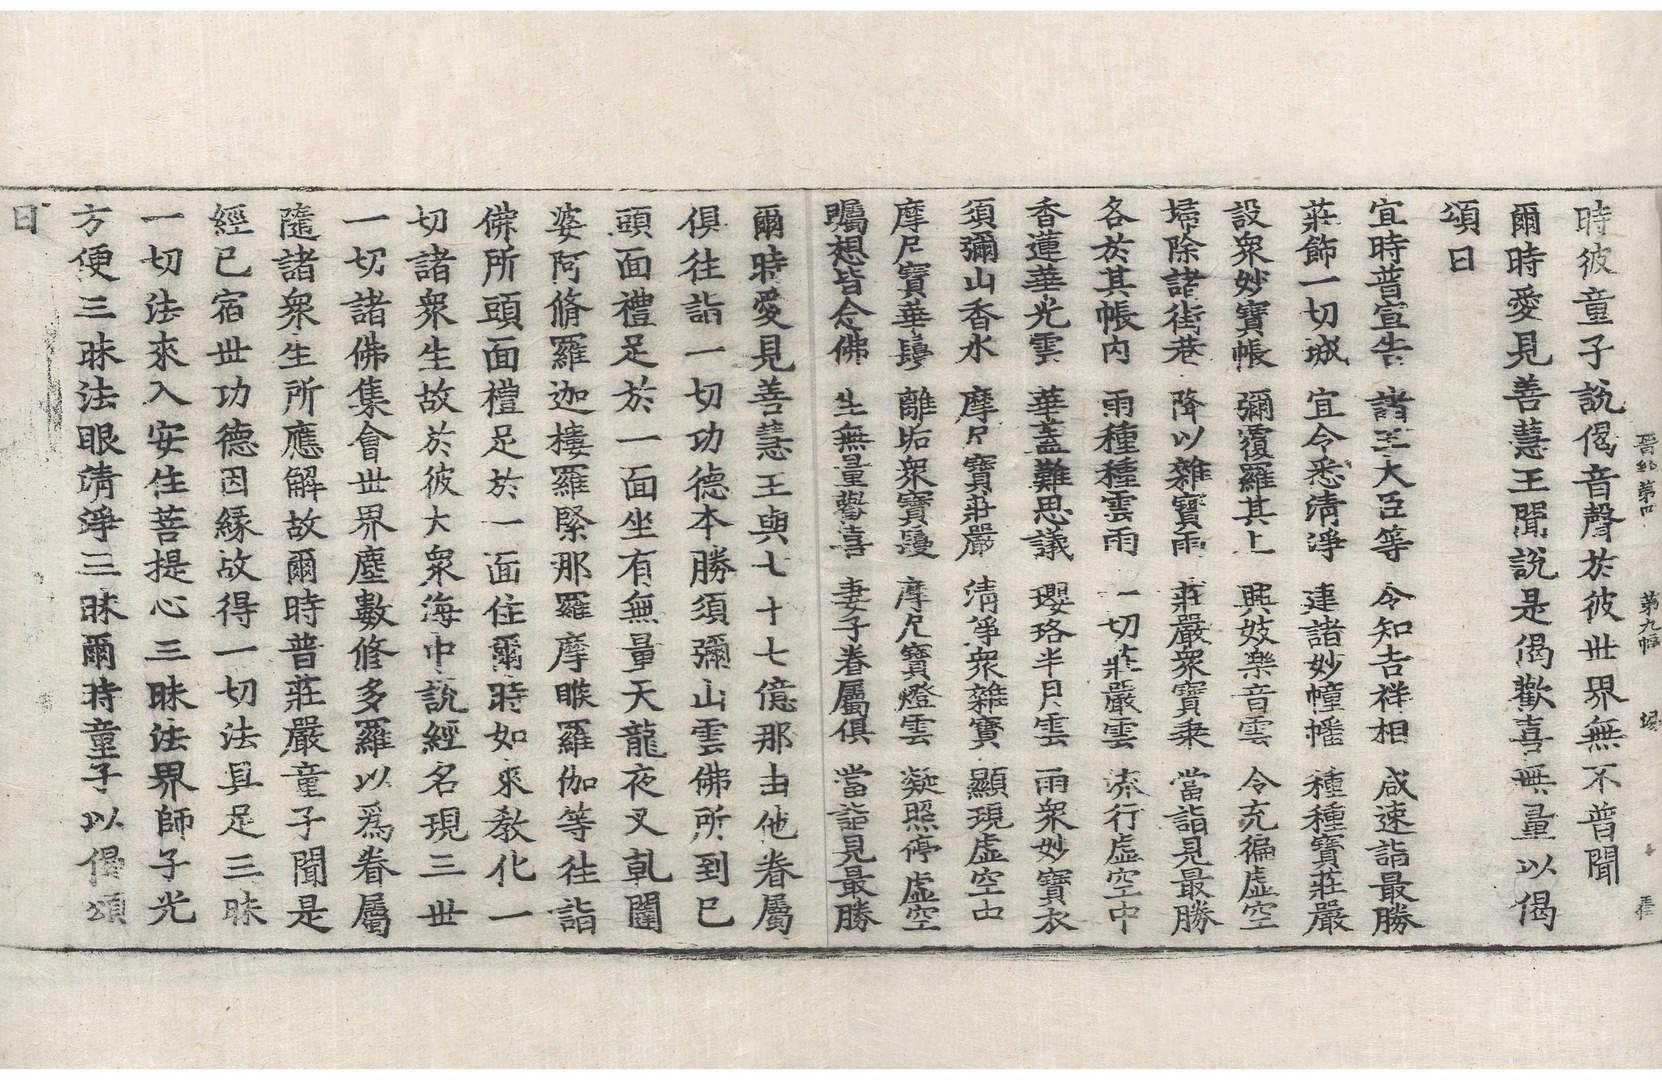 晉經第四 第九幅 埸
時彼童子說偈音聲於彼世界無不普聞
爾時愛見善慧王聞說是偈歡喜無量以偈
頌曰
宜時普宣告 諸王大臣等 令知吉祥相 咸速詣最勝
莊飾一切城 宜令悉清淨 建諸妙幢幡 種種寶莊嚴
設衆妙寶帳 彌覆羅其上 興妓樂音雲 令充徧虛空
埽除諸街巷 降以雜寶雨 莊嚴衆寶乘 當詣見最勝
各於其帳內 雨種種雲雨 一切莊嚴雲 流行虛空中
香蓮華光雲 華蓋難思議 瓔珞半月雲 雨衆妙寶衣
須彌山香水 摩尼寶莊嚴 清淨衆雜寶 顯現虛空中
摩尼寶華鬘 離垢衆寶鬘 摩尼寶燈雲 凝照停虛空
矚想皆念佛 生無量歡喜 妻子眷屬俱 當詣見最勝
爾時愛見善慧王與七十七億那由他眷屬
俱往詣一切功德本勝須彌山雲佛所到已
頭面禮足於一面坐有無量天龍夜叉乹闥
婆阿脩羅迦樓羅緊那羅摩睺羅伽等往詣
佛所頭面禮足於一面住爾時如來敎化一
切諸衆生故於彼大衆海中說經名現三世
一切諸佛集會世界塵數修多羅以爲眷屬
隨諸衆生所應解故爾時普莊嚴童子聞是
經已宿世功德因緣故得一切法具足三昧
一切法來入安住菩提心三昧法界師子光
方便三昧法眼清淨三昧爾時童子以偈頌
曰